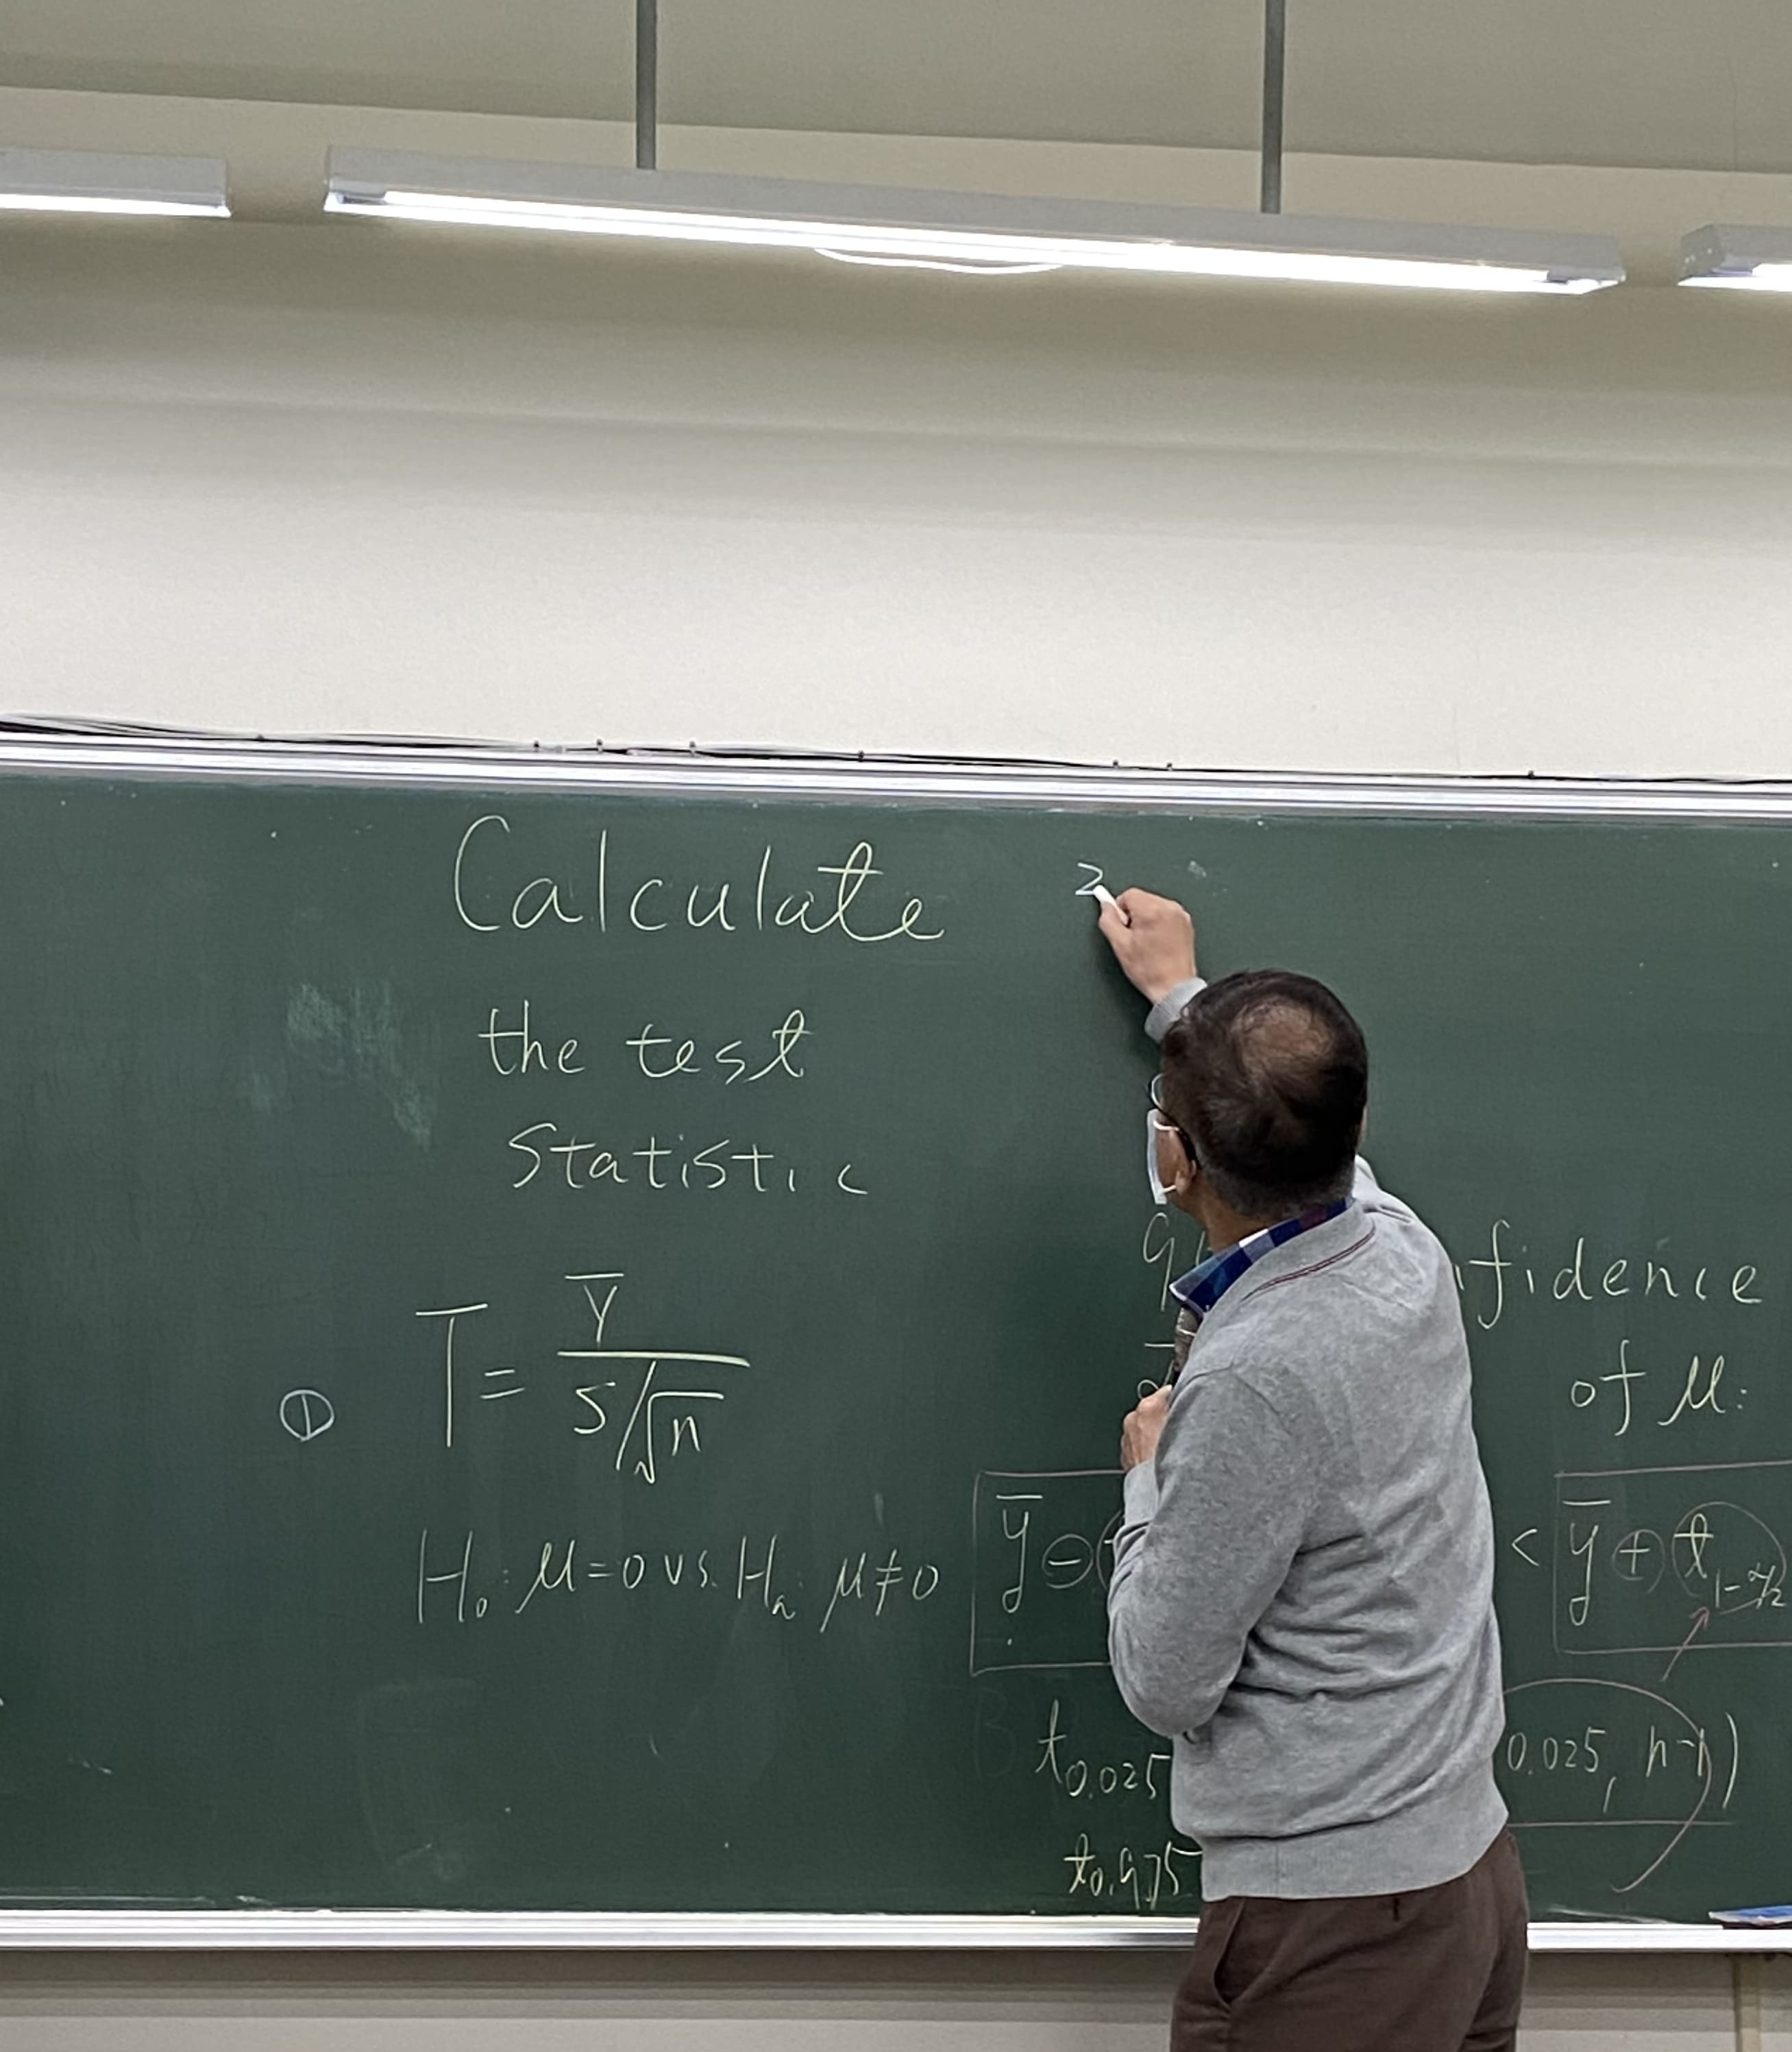 Calculate
the test
statistic
① T = Y̅ / (S/√n)
H₀: μ=0 vs. Hₐ: μ≠0
2
fidence
of μ:
y̅ ⊖
< y̅ ⊕ t₁₋α/₂
t₀.₀₂₅
0.025, n-1)
t₀.₉₇₅